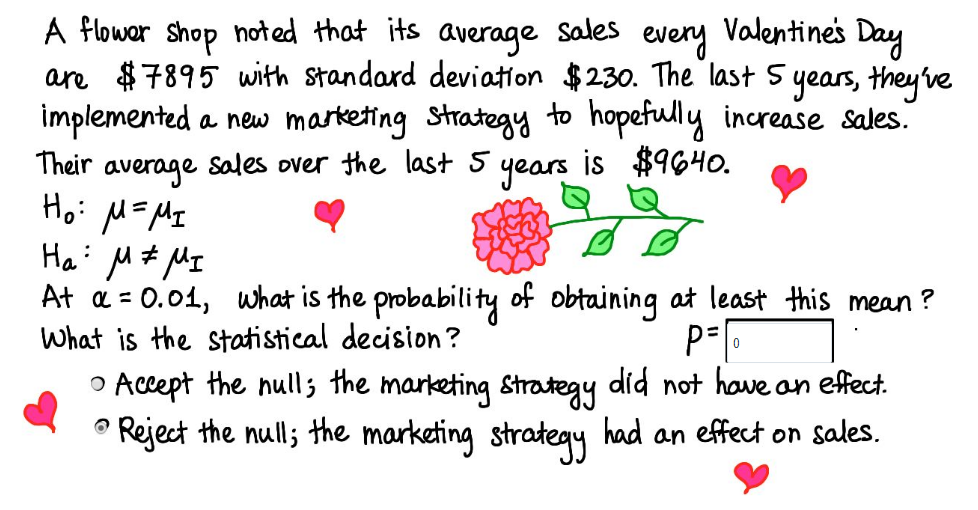 A flower shop noted that its average sales every Valentine's Day
are $7895 with standard deviation $230. The last 5 years, they've
implemented a new marketing strategy to hopefully increase sales.
Their average sales over the last 5 years is $9640.
H₀: μ=μI
Ha: μ≠μI
At α = 0.01, what is the probability of obtaining at least this mean?
What is the statistical decision? p= 0
Accept the null; the marketing strategy did not have an effect.
Reject the null; the marketing strategy had an effect on sales.